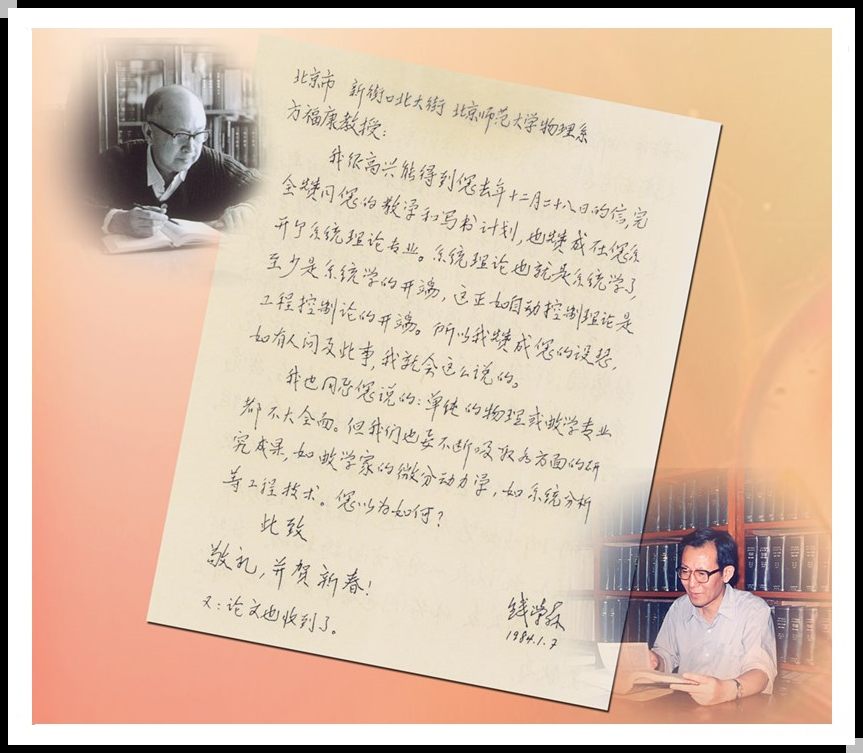 北京市 新街口北大街 北京师范大学物理系
方福康教授：
我很高兴能得到您去年十二月二十八日的信，完
全赞同您的教学和写书计划，也赞成在您系
开个系统理论专业。系统理论也就是系统学了，
至少是系统学的开端，这正如自动控制理论是
工程控制论的开端。所以我赞成您的设想，
如有人问及此事，我就会这么说的。
我也同意您说的：单纯的物理或数学专业
都不大全面。但我们也要不断吸取各方面的研
究成果，如数学家的微分动力学，如系统分析
等工程技术。您以为如何？
此致
敬礼，并贺新春！
钱学森
1984.1.7
又：论文也收到了。